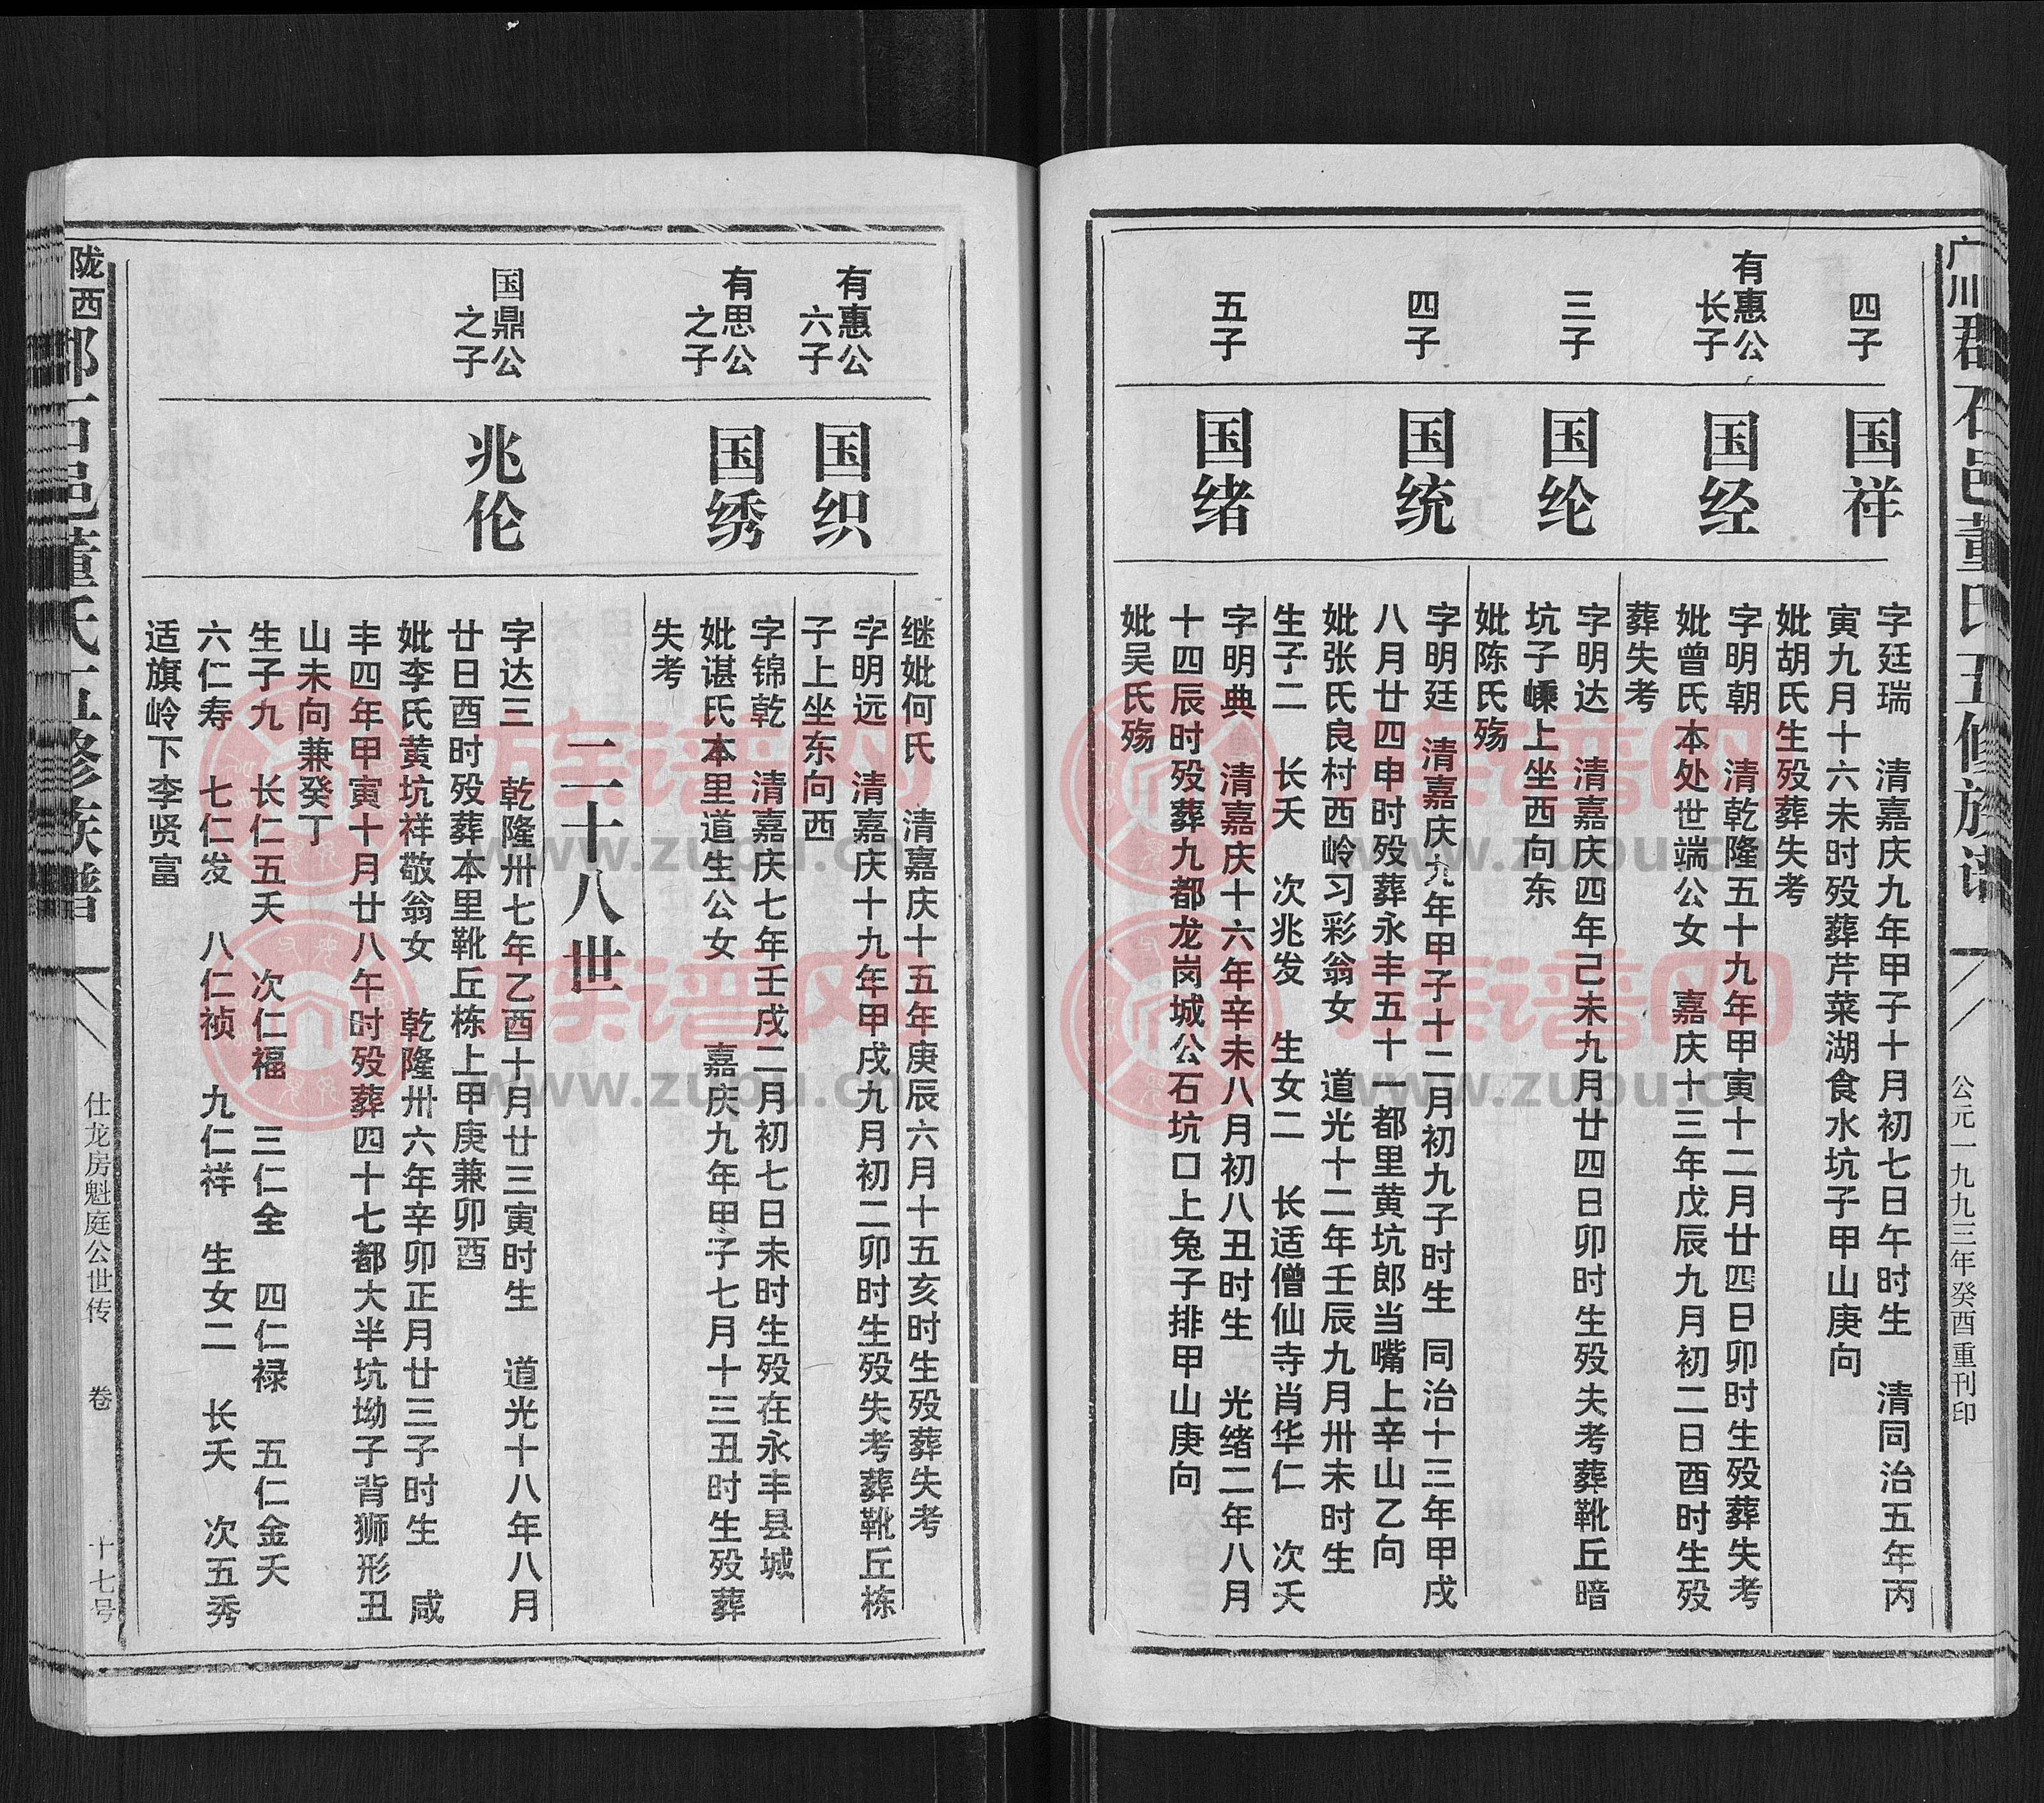 广川郡石邑董氏五修族谱
公元一九九三年癸酉重刊印
四子
国祥
字廷瑞 清嘉庆九年甲子十月初七日午时生 清同治五年丙
寅九月十六未时殁葬芹菜湖食水坑子甲山庚向
妣胡氏生殁葬失考
有惠公
长子
国经
字明朝 清乾隆五十九年甲寅十二月廿四日卯时生殁葬失考
妣曾氏本处世端公女 嘉庆十三年戊辰九月初二日酉时生殁
葬失考
三子
国纶
字明达 清嘉庆四年己未九月廿四日卯时生殁夫考葬靴丘暗
坑子嵊上坐西向东
妣陈氏殇
四子
国统
字明廷 清嘉庆九年甲子十二月初九子时生 同治十三年甲戌
八月廿四申时殁葬永丰五十一都里黄坑郎当嘴上辛山乙向
妣张氏良村西岭习彩翁女 道光十二年壬辰九月卅未时生
生子二 长夭 次兆发 生女二 长适僧仙寺肖华仁 次夭
五子
国绪
字明典 清嘉庆十六年辛未八月初八丑时生 光绪二年八月
十四辰时殁葬九都龙岗城公石坑口上兔子排甲山庚向
妣吴氏殇
继妣何氏 清嘉庆十五年庚辰六月十五亥时生殁葬失考
有惠公
六子
国织
字明远 清嘉庆十九年甲戌九月初二卯时生殁失考葬靴丘栋
子上坐东向西
有思公
之子
国绣
字锦乾 清嘉庆七年壬戌二月初七日未时生殁在永丰县城
妣谌氏本里道生公女 嘉庆九年甲子七月十三丑时生殁葬
失考
二十八世
国鼎公
之子
兆伦
字达三 乾隆卅七年乙酉十月廿三寅时生 道光十八年八月
廿日酉时殁葬本里靴丘栋上甲庚兼卯酉
妣李氏黄坑祥敬翁女 乾隆卅六年辛卯正月廿三子时生 咸
丰四年甲寅十月廿八午时殁葬四十七都大半坑坳子背狮形丑
山未向兼癸丁
生子九 长仁五夭 次仁福 三仁全 四仁禄 五仁金夭
六仁寿 七仁发 八仁祯 九仁祥 生女二 长夭 次五秀
适旗岭下李贤富
陇西郡石邑董氏五修族谱
仕龙房魁庭公世传 卷 十七号
族谱网
www.zupu.cn
族谱网
www.zupu.cn
族谱网
www.zupu.cn
族谱网
www.zupu.cn